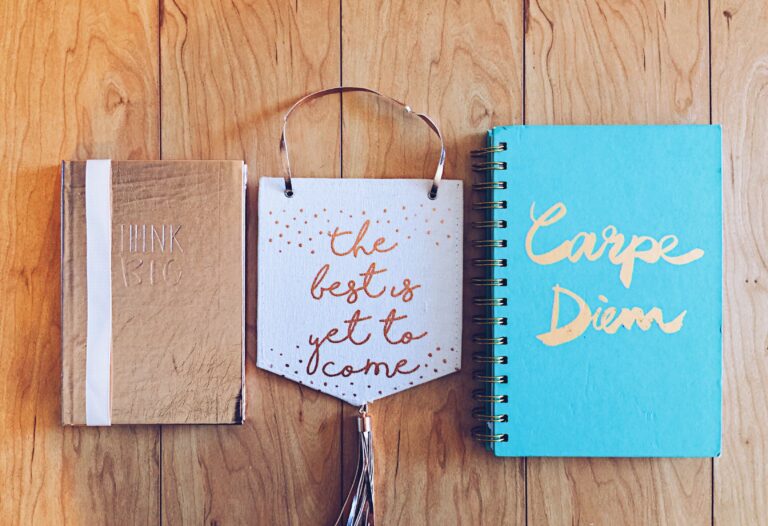 THINK
BIG
the
best is
yet to
come
Carpe
Diem